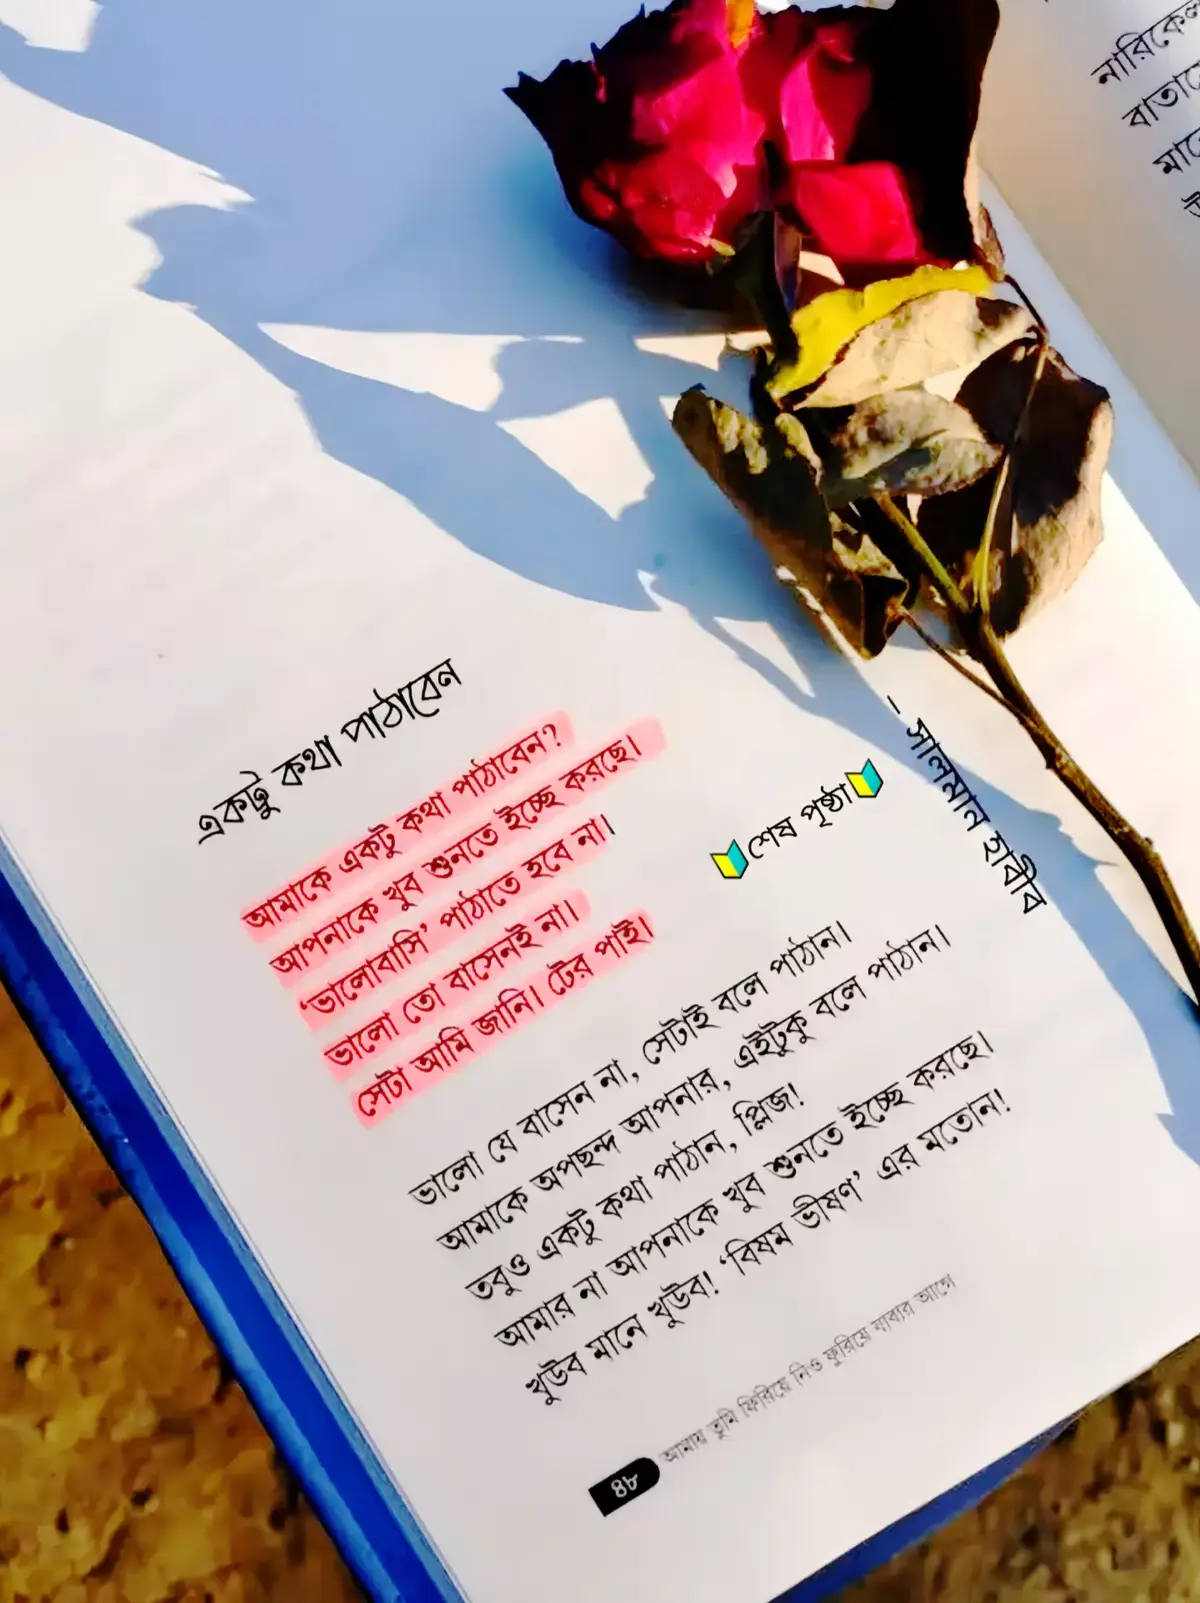 একটু কথা পাঠাবেন
আমাকে একটু কথা পাঠাবেন?
আপনাকে খুব শুনতে ইচ্ছে করছে।
‘ভালোবাসি’ পাঠাতে হবে না।
ভালো তো বাসেনই না।
সেটা আমি জানি। টের পাই।
ভালো যে বাসেন না, সেটাই বলে পাঠান।
আমাকে অপছন্দ আপনার, এইটুকু বলে পাঠান।
তবুও একটু কথা পাঠান, প্লিজ!
আমার না আপনাকে খুব শুনতে ইচ্ছে করছে।
খুউব মানে খুউব! ‘বিষম ভীষণ’ এর মতোন!
৪৮ আমায় তুমি ফিরিয়ে নিও ফুরিয়ে যাবার আগে
🔰শেষ পৃষ্ঠা🔰
– সালমান হাবীব